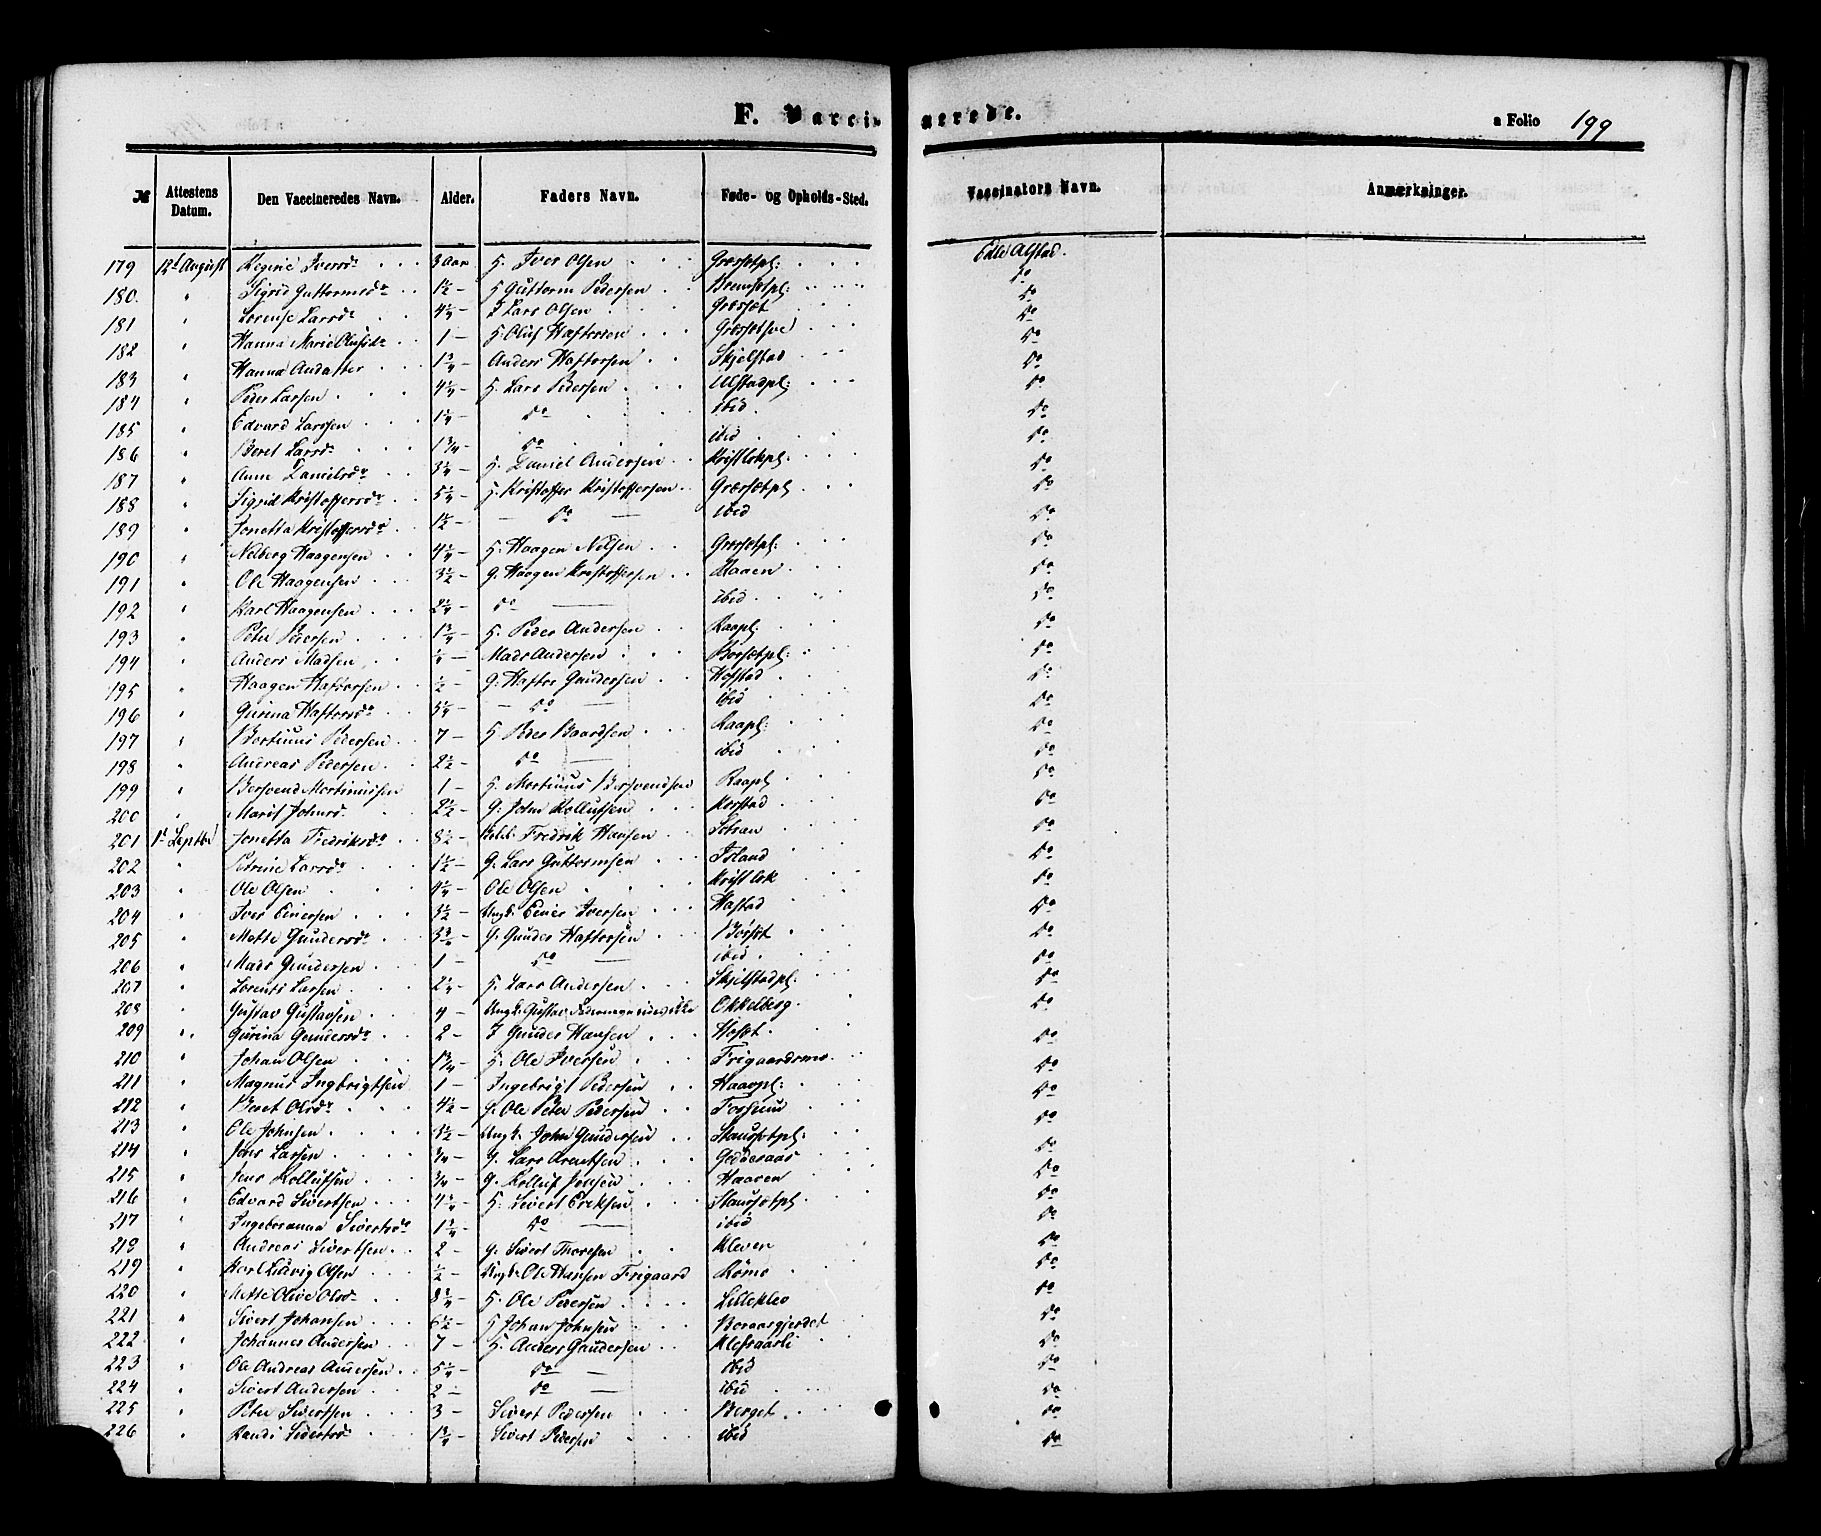 F. Vaccinerede.
a Folio 199
№ Attestens Datum. Den Vaccineredes Navn. Alder. Faders Navn. Føde- og Opholds-Sted. Vaccinators Navn. Anmærkninger.
179 12t August Regine Iversdr 3 Aar H. Iver Olsen Græsetpl: Alstad.
180. " Sigrid Guttormsdr 1½ - H Guttorm Pedersen do
181 " Lorense Larsdr 4¼ - Lars Olsen Græsæt do
182 " Hanna Marie 1 - H. Oluf Haftorsen do
183 " Hanna Andatter 1¾ - Anders Haftorsen Skjelstad do
184 " Peder Larsen 4¼ - H. Lars Pedersen Ulstadpl: do
185 " Edvard Larsen 1¼ - do ibid. do
186 " Beret Larsdr 1¾ - do ibid do
187 " Ane Danielsdr 3¼ - H. Daniel Andersen do
188 " Sigrid Kristoffersdr 5¼ - H. Kristoffer Kristoffersen Græsætpl do
189 " Jonetta Kristoffersdr 1½ - do ibid do
190 " Nelberg Haagensen 4¼ - H. Haagen Nelsen Græsetpl: do
191 " Ole Haagensen 3½ - G. Haagen Kristoffersen do
192 " Karl Haagensen 2¼ - do ibid do
193 " Peter Pedersen 1¾ - H. Peder Andersen Raapl: do
194 " Anders Madsen ¼ - Mads Andersen Børsætpl: do
195 " Haagen Haftorsen ½ - G. Haftor Gundersen Hofstad do
196 " Gurina Haftorsdr 5¼ - do ibid do
197 " Pedersen 7 - H Peder Baardsen Raapl: do
198 " Andreas Pedersen 2½ - do ibid do
199 " Bersvend Mortinussen 1 - H. Mortinus Bersvendsen Raapl do
200 " Marit Johnsdr 2½ - G. John Rollufsen Korstad do
201 1t Septbr Jonetta Fredriksdr 8½ - Fredrik Hansen do
202 " Petrine Larsdr 1½ - G. Lars Guttormsen do
203 " Ole Olsen 4¼ - Ole Olsen do
204 " Iver Einersen 3½ - Ungk. Einer Iversen Hastad do
205 " Mette Gundersdr 3¾ - G. Gunder Haftorsen Børsæt do
206 " Mads Gundersen 1 - do ibid. do
207 " Lorents Larsen 2¼ - H. Lars Andersen Skjelstadpl: do
208 " Gustav Gustavsen 4 - Ungk. Gustav Ekkelberg. do
209 " Gurina Gundersdr 2 - Gunder Hansen Hosæt. do
210 " Johan Olsen 1¾ - H. Ole Iversen Frigaardsmo do
211 " Magnus Ingbrigtsen 1 - Ingebrigt Pedersen Haavpl: do
212 " Beret Olsdr 4½ - G. Ole Peter Pedersen Fossum do
213 " Ole Johnsen ½ - Ungk. John Gundersen Staursetpl: do
214 " Jens Larsen ¾ - G. Lars Arentsen Gedderaas do
215 " Jens Rollufsen ¾ - G. Rolluf Jensen Haaven do
216 " Edvard Sivertsen 4¼ - H. Sivert Eriksen Staursetpl do
217 " Ingeboranna Sivertsdr 1¾ - do ibid do
218 " Andreas Sivertsen 2 - G. Sivert Thoresen Kleven do
219 " Karl Ludvig Olsen ½ - Ungk. Ole Hansen Frigaard Rømo do
220 " Mette Olive Olsdr 8¾ - H. Ole Pedersen Lillekleo do
221 " Sivert Johansen 6½ - H Johan Johnsen do
222 " Johannes Andersen 7 - H. Anders Gundersen Klefsaasli do
223 " Ole Andreas Andersen 5¼ - do ibid do
224 " Sivert Andersen 2 - do ibid do
225 " Peter Sivertsen 3 - Sivert Pedersen Berget. do
226 " Randi Sivertsdr 1¾ - Sivert Pedersen ibid do